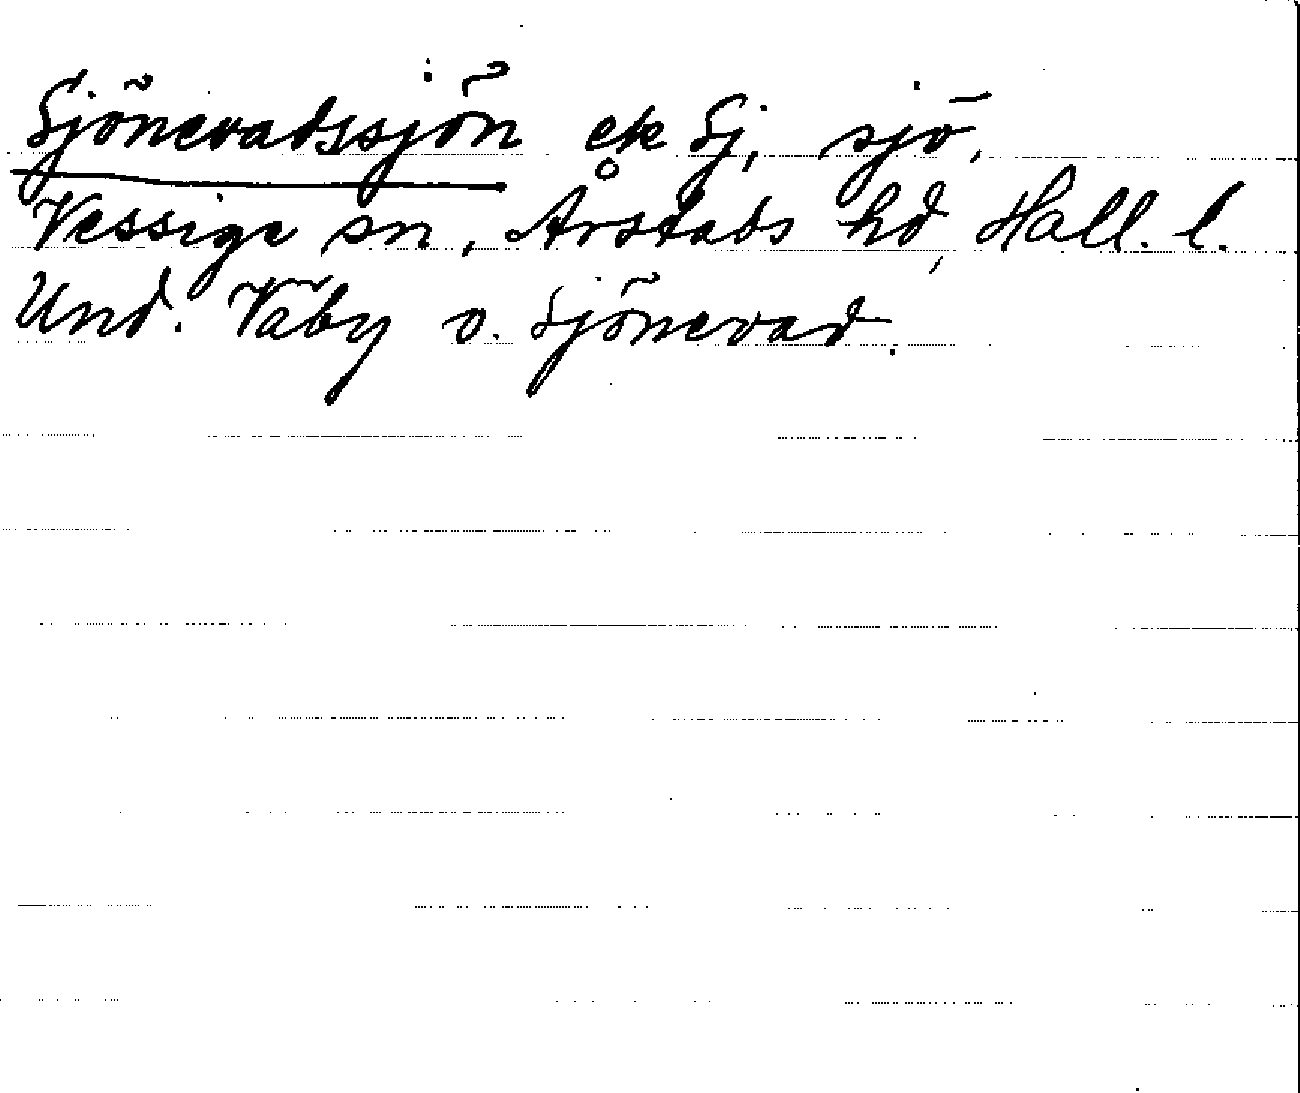 Sjönevadssjön ek Sj, sjö,
Vessige sn, Årstads hd, Hall. l.
Und. Väby o. Sjönevad.